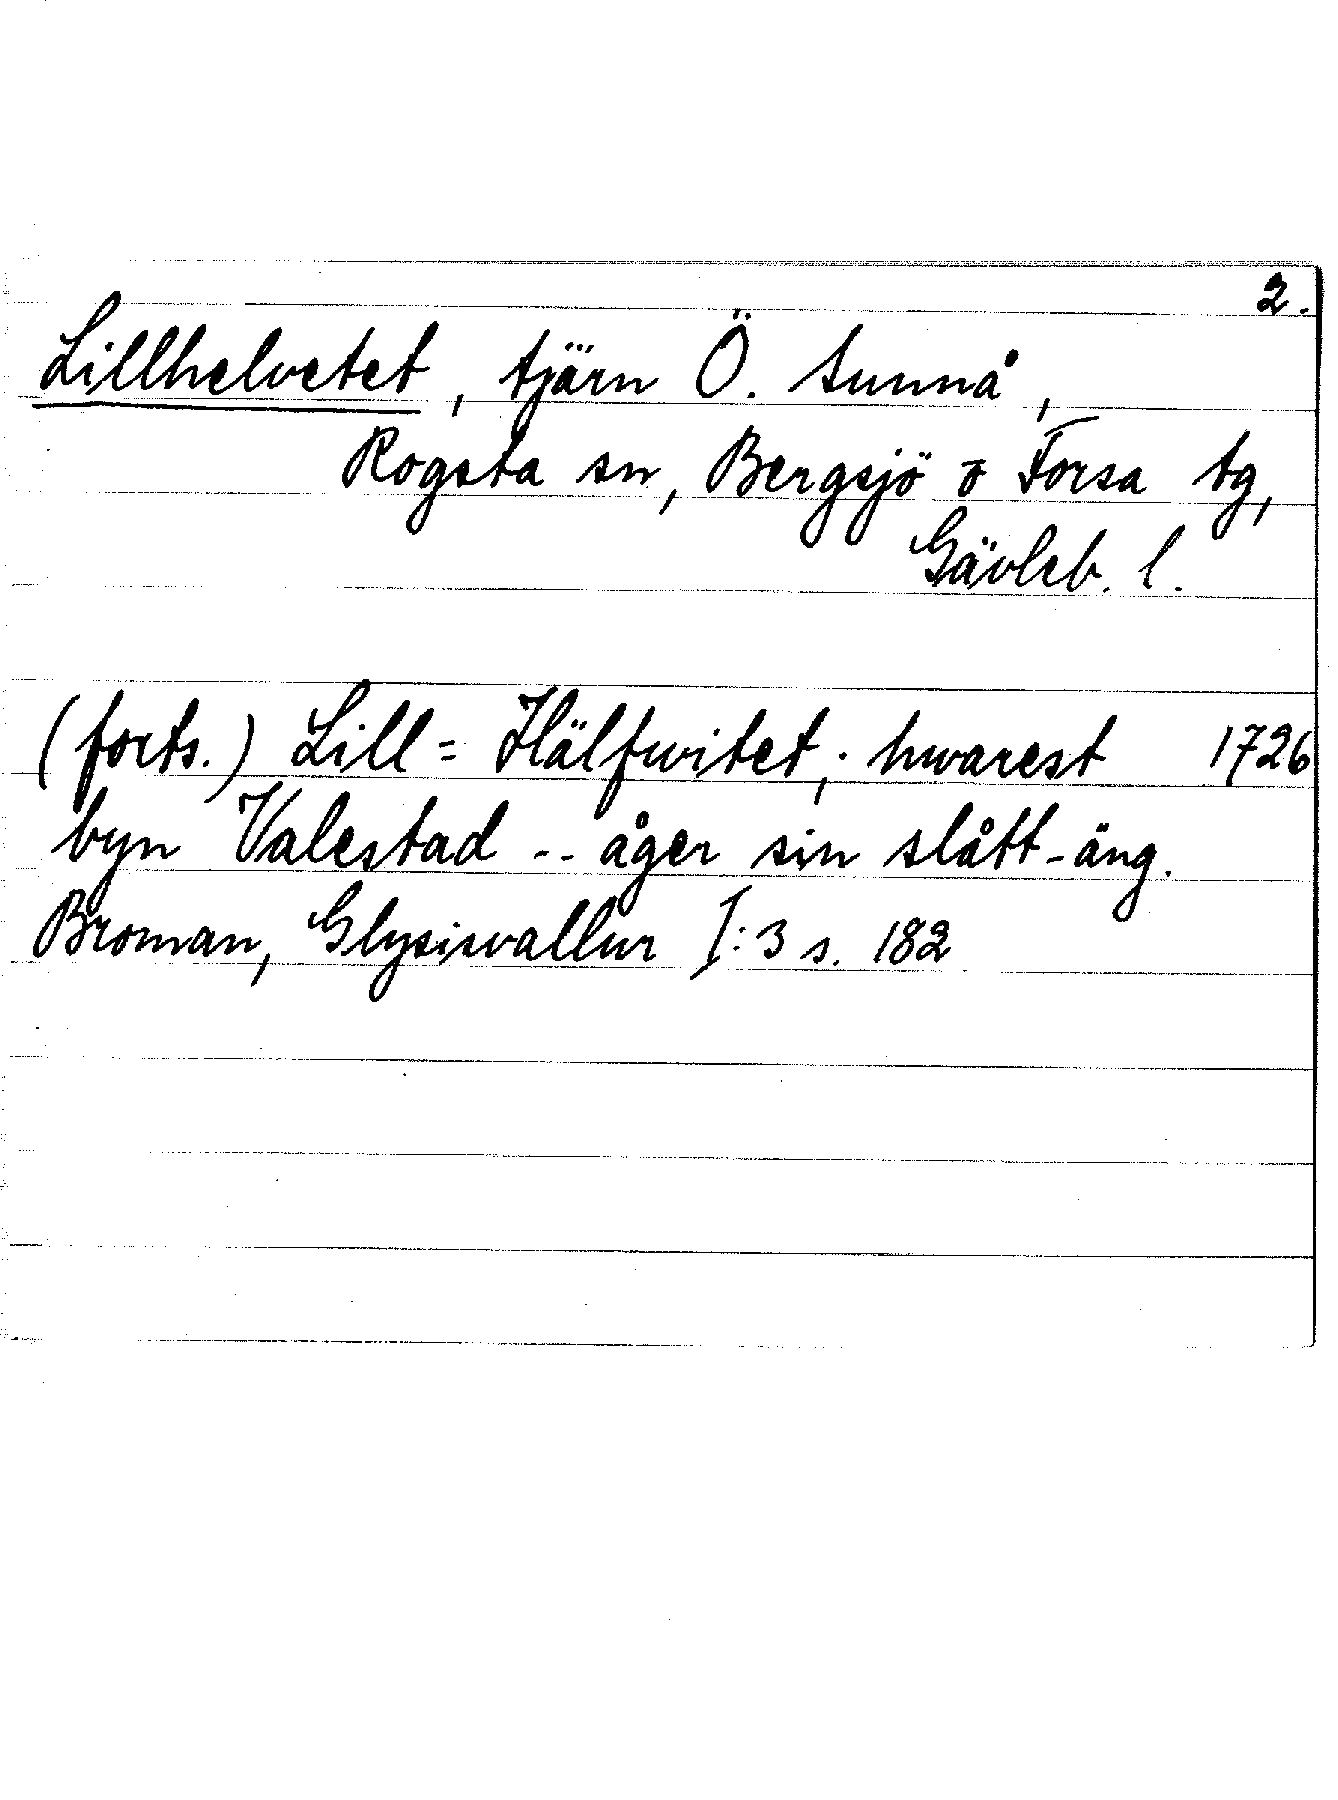 2.
Lillhelvetet, tjärn Ö. Sunnå,
Rogsta sn, Bergsjö o Forsa tg,
Gävleb. l.
(forts.) Lill= Hälfwitet; hwarest 1726
byn Valestad -- åger sin slått-äng.
Broman, Glysisvallur I:3 s. 182